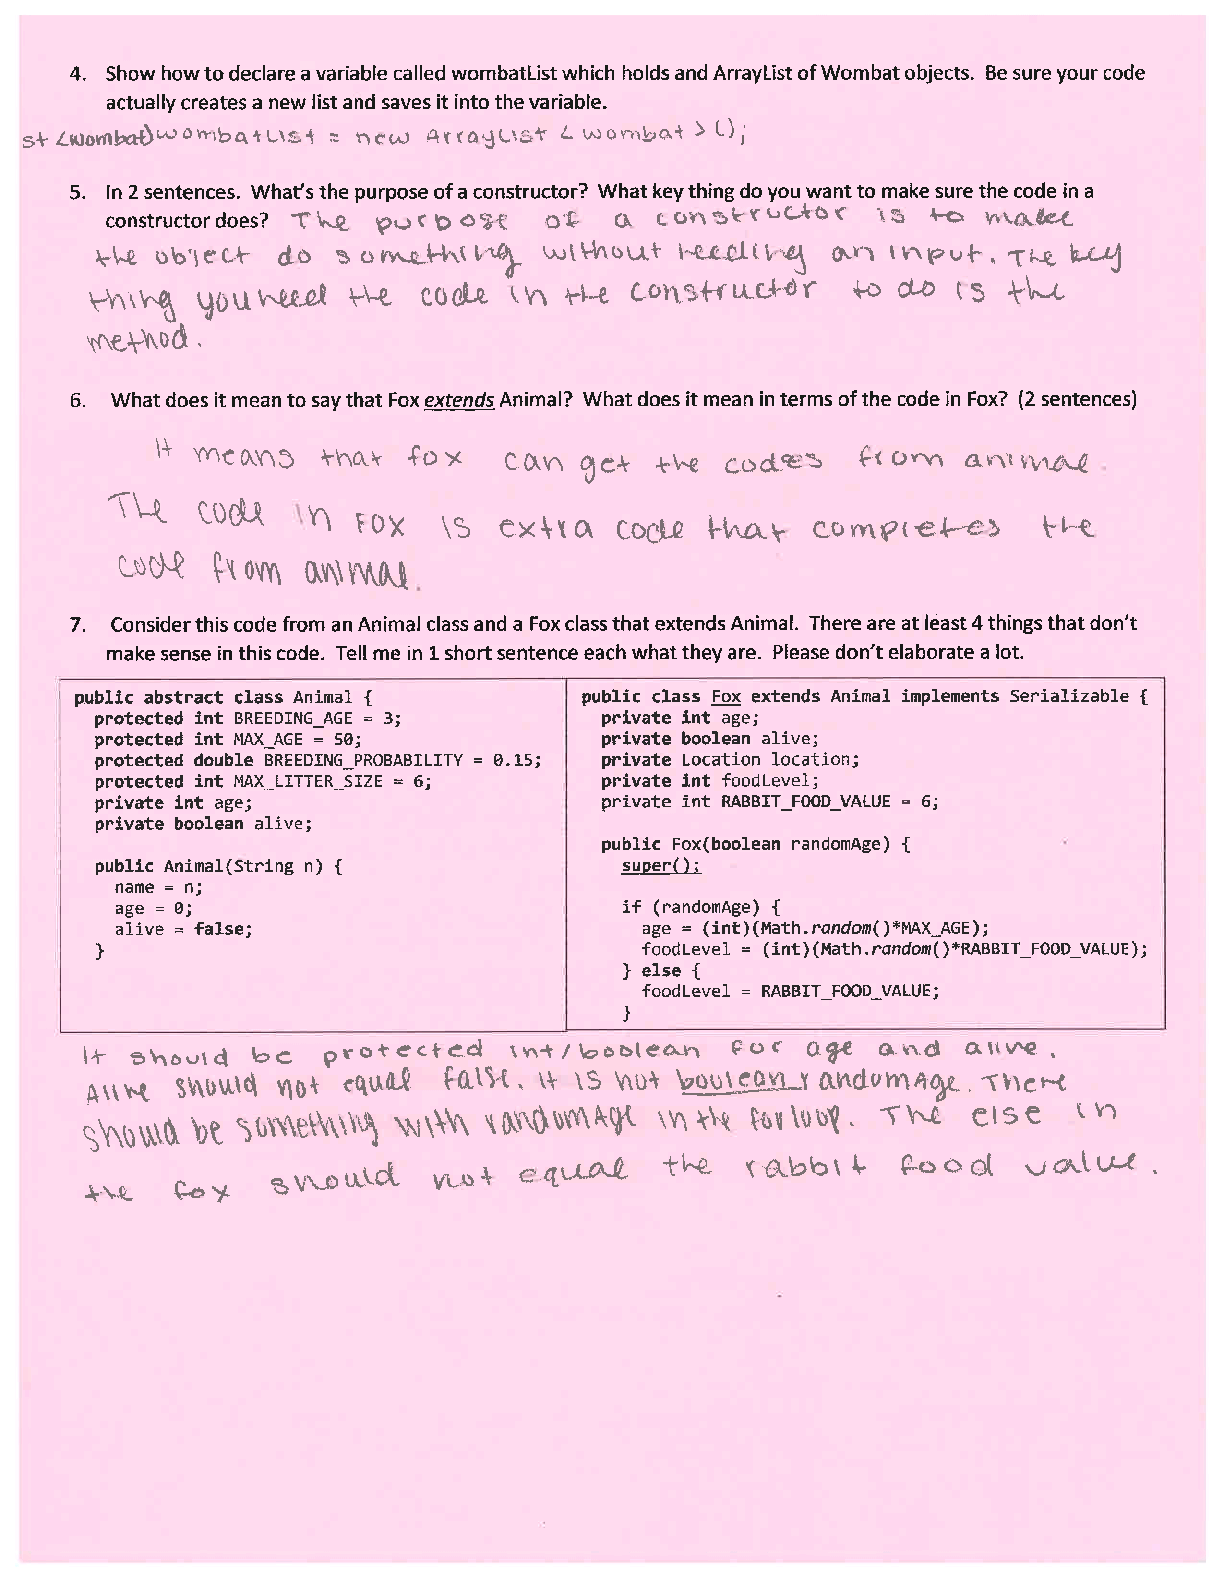 4. Show how to declare a variable called wombatList which holds and ArrayList of Wombat objects. Be sure your code
actually creates a new list and saves it into the variable.
st <Wombat> wombatList = new ArrayList <wombat>();
5. In 2 sentences. What's the purpose of a constructor? What key thing do you want to make sure the code in a
constructor does? The purpose of a constructor is to make
the object do something without needing an input. The key
thing you need the code in the constructor to do is the
method.
6. What does it mean to say that Fox extends Animal? What does it mean in terms of the code in Fox? (2 sentences)
It means that fox can get the codes from animal.
The code in Fox is extra code that completes the
code from animal.
7. Consider this code from an Animal class and a Fox class that extends Animal. There are at least 4 things that don't
make sense in this code. Tell me in 1 short sentence each what they are. Please don't elaborate a lot.
public abstract class Animal {
protected int BREEDING_AGE = 3;
protected int MAX_AGE = 50;
protected double BREEDING_PROBABILITY = 0.15;
protected int MAX_LITTER_SIZE = 6;
private int age;
private boolean alive;
public Animal(String n) {
name = n;
age = 0;
alive = false;
}
public class Fox extends Animal implements Serializable {
private int age;
private boolean alive;
private Location location;
private int foodLevel;
private int RABBIT_FOOD_VALUE = 6;
public Fox(boolean randomAge) {
super();
if (randomAge) {
age = (int)(Math.random()*MAX_AGE);
foodLevel = (int)(Math.random()*RABBIT_FOOD_VALUE);
} else {
foodLevel = RABBIT_FOOD_VALUE;
}
It should be protected int/boolean for age and alive.
Alive should not equal false. It is not boolean randomAge. There
should be something with randomAge in the for loop. The else in
the fox should not equal the rabbit food value.